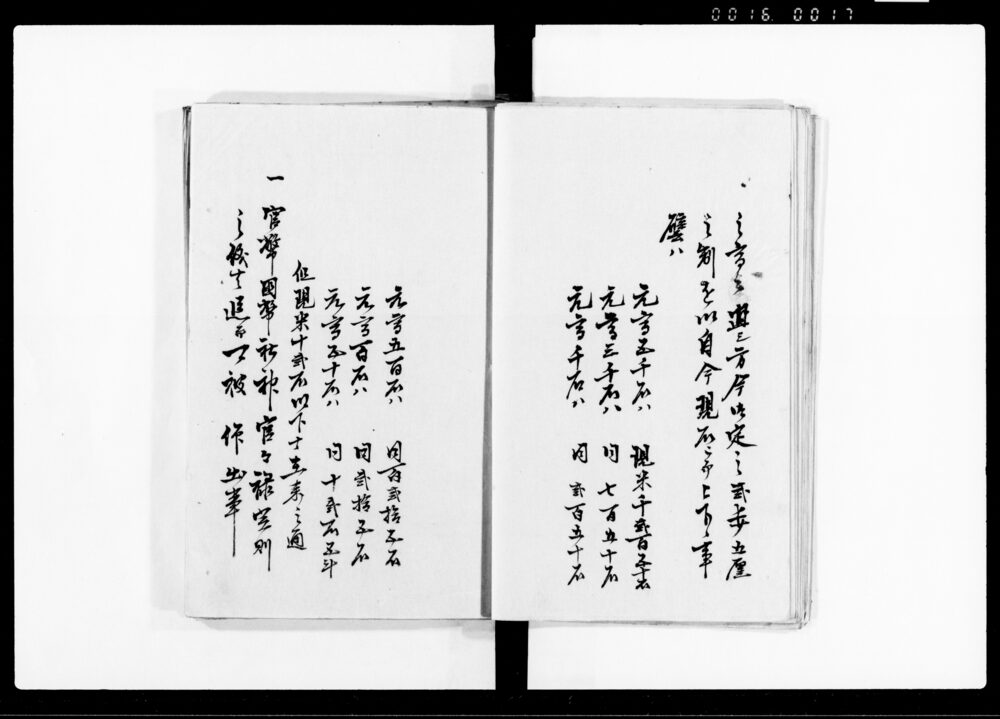 0016 0017
之高ニ 三方今御定之弐歩五厘
之制を以自今現石ニ而上下之事
譬ハ
元高五千石ハ 現米千弐百五十石
元高三千石ハ 同七百五十石
元高千石ハ 同弐百五十石
元高五百石ハ 同百弐拾五石
元高百石ハ 同弐拾五石
元高五十石ハ 同十弐石五斗
但現米十弐石以下士在来之通
一官幣国幣社神官々禄定則
之儀者追而可被 仰出事